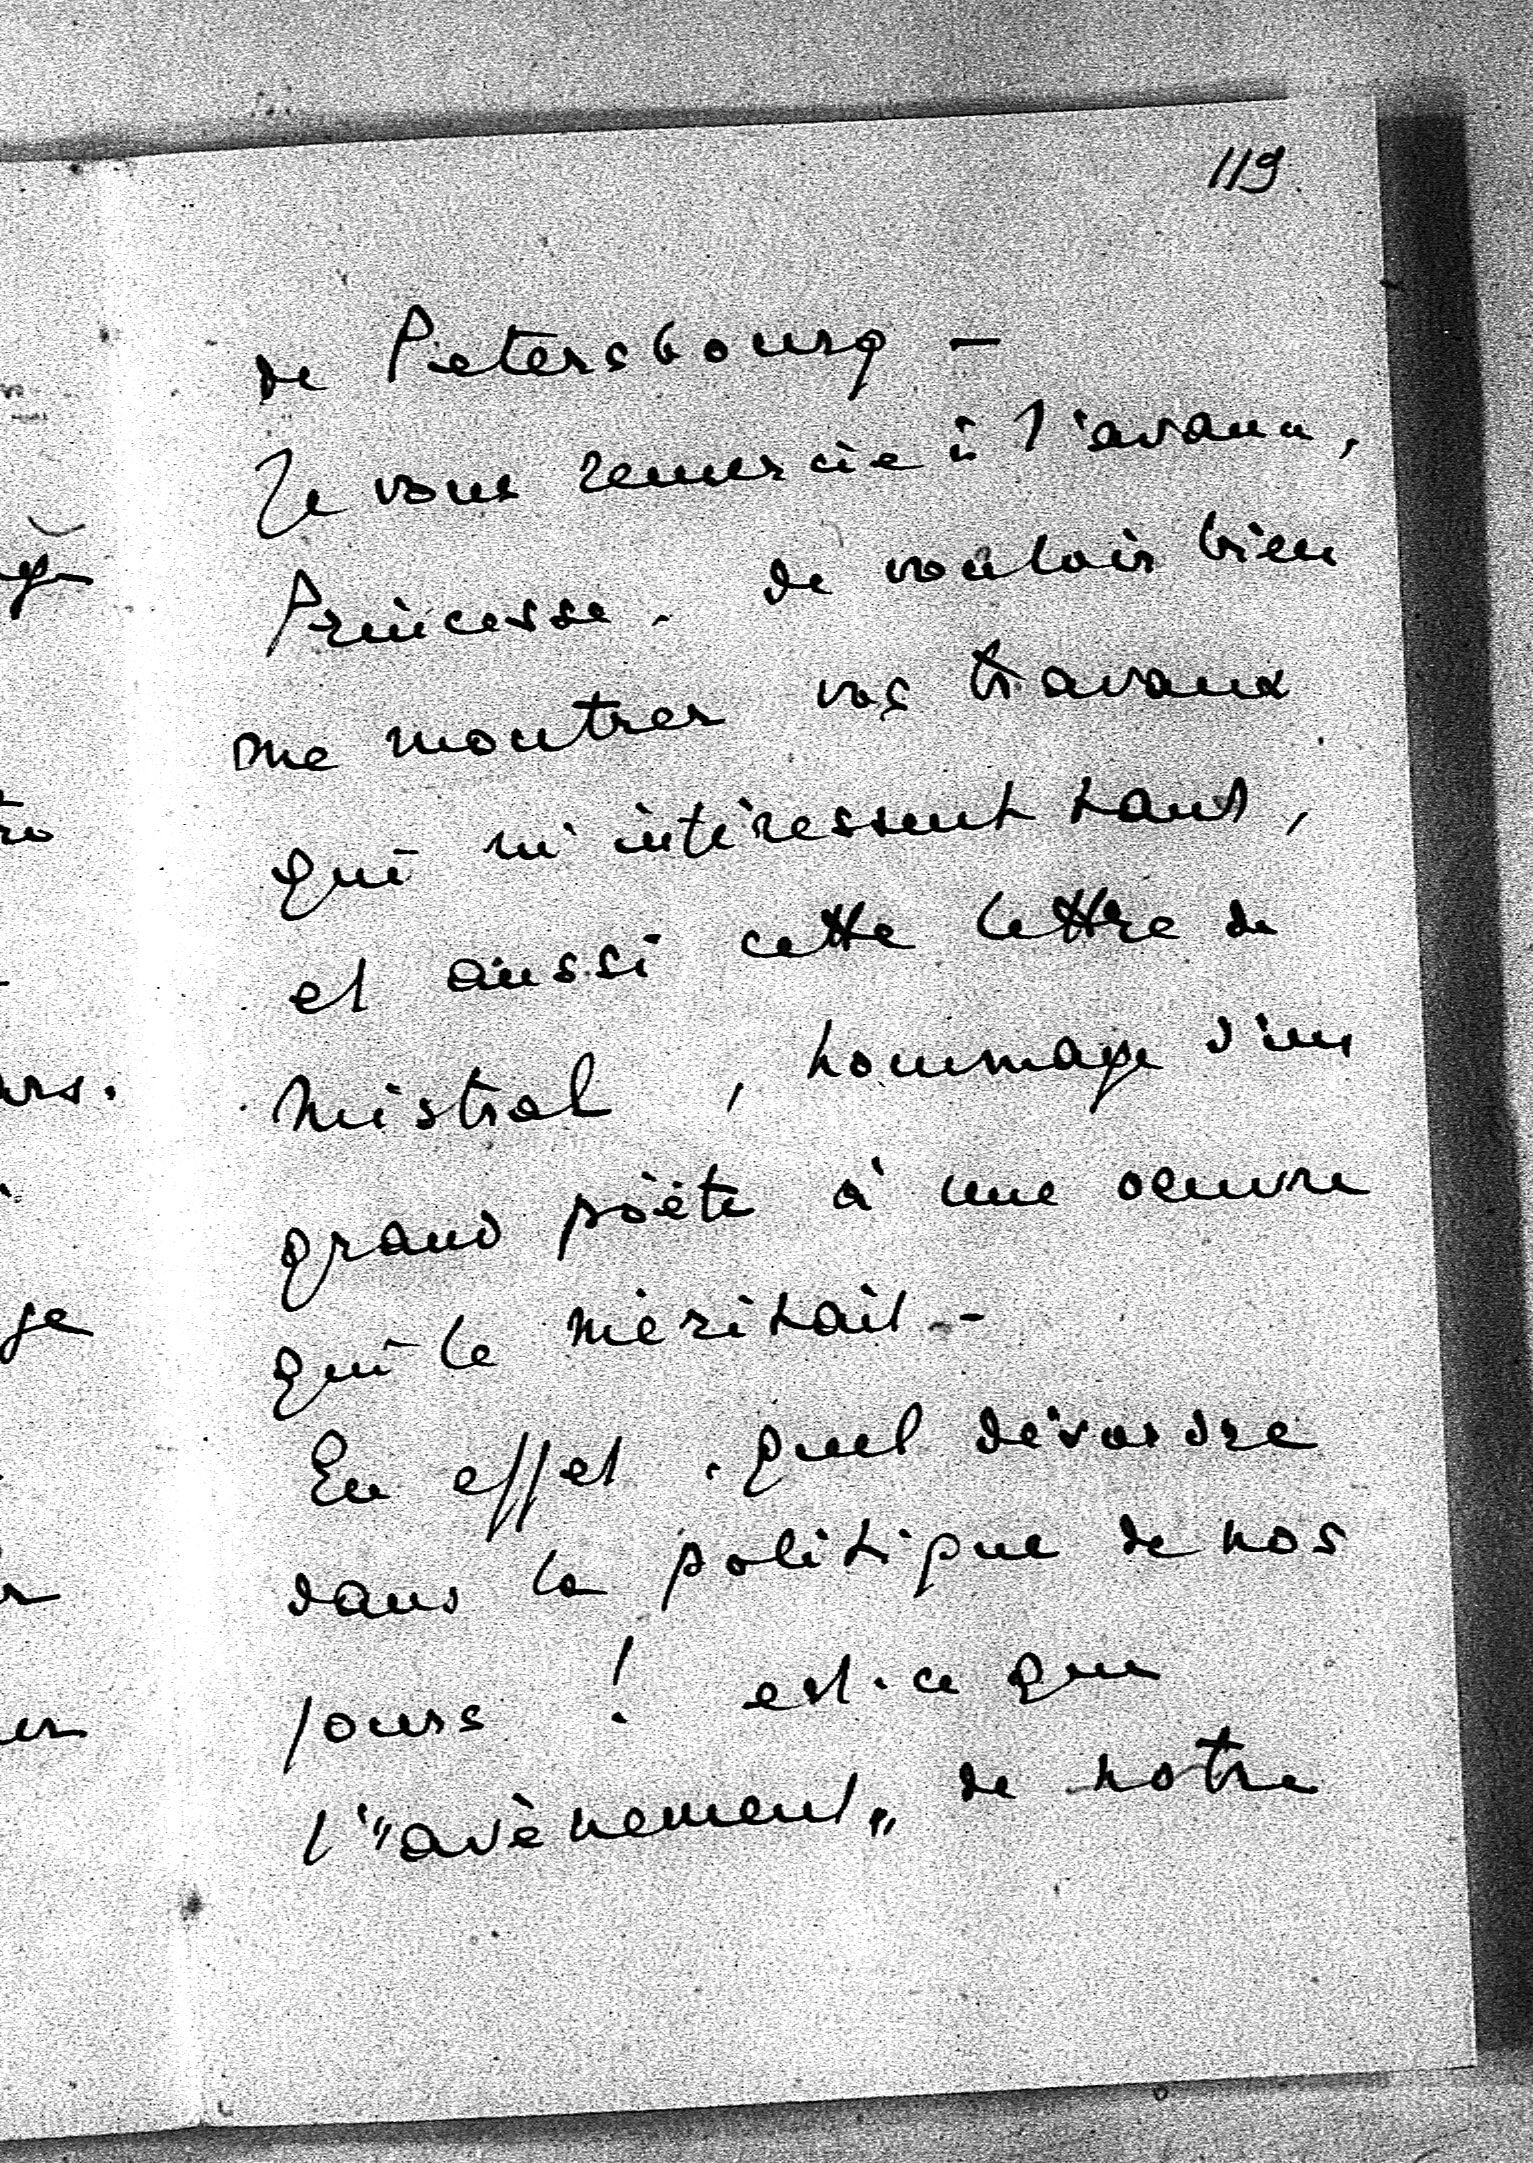 119.
de Pietersbourg -
Je vous remercie à l'avance,
Princesse. de vouloir bien
me montrer vos travaux
qui m'intéressent tant,
et aussi cette lettre de
Mistral, hommage d'un
grand poète à une oeuvre
qui le méritait. -
En effet. quel désordre
dans la politique de nos
jours ! est-ce que
l'"avènement" de notre